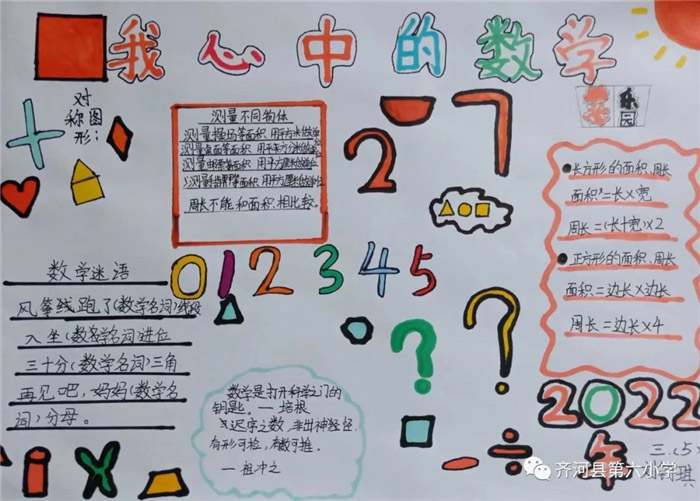 我心中的数学
对称图形:
测量不同物体
测量操场等面积 用平方米做单位
测量桌面等面积 用平方分米做单位
周长不能和面积相比较。
乐园
长方形的面积、周长
面积=长×宽
周长=(长+宽)×2
正方形的面积、周长
面积=边长×边长
周长=边长×4
数学迷语
风筝线跑了(数学名词)线段
入坐(数名学名词)进位
三十分(数学名词)三角
再见吧,妈妈(数学名
词)分母。
0 1 2 3 4 5
2 7
? ?
数学是打开科学之门的
钥匙。一培根
迟序之数,非出神怪,
有形可检,有数可推。
一祖冲之
2022
年
三、(5)
齐河县第六小学